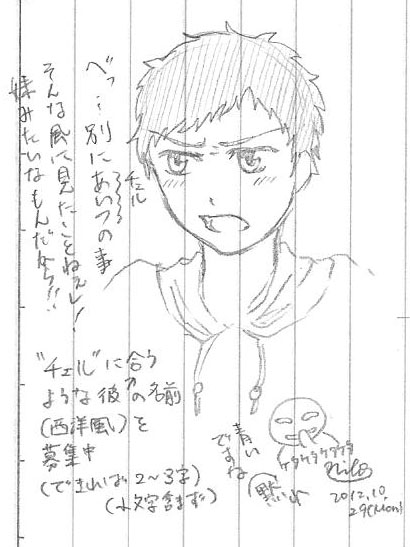 べっ…別にあいつの事
チェル
そんな風に見たことねぇし!
妹みたいなもんだから!!
"チェル"に合う
ような彼の名前
(西洋風)を
募集中
(できれば2〜3字)
(小文字含まず)
青い
ですね
(黙れ)
ケタケタケタケタ
nilo
2012.10.
29(Mon)